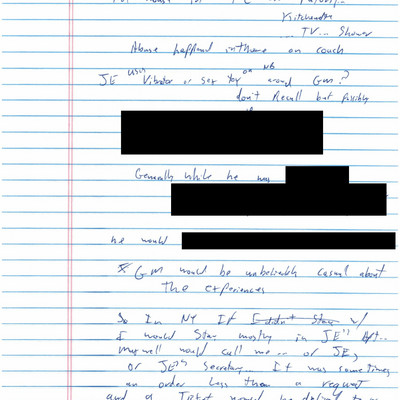 Kitchenette
... TV... Shower
Abuse happened in there on couch
JE using vibrator or sex toy on  around Gm?
don't recall but possibly
Generally while he was
he would
* GM would be unbelievably casual about
the experiences
So In NY If I didn't Stay w/
I would Stay mostly in JE's Apt..
Maxwell would call me -- or JE,
or JE's secretary... It was sometimes
an order less than a request
and a Ticket would be